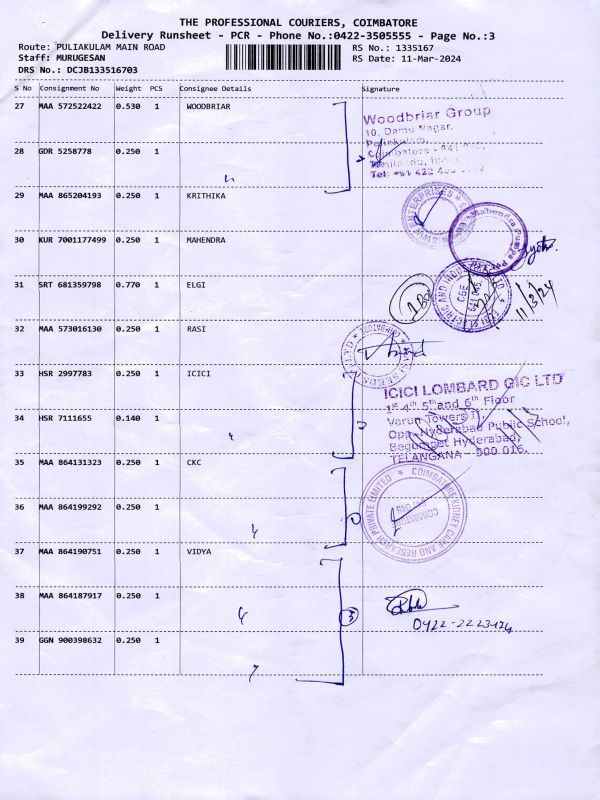 THE PROFESSIONAL COURIERS, COIMBATORE
Delivery Runsheet - PCR - Phone No.:0422-3505555 - Page No.:3
Route: PULIAKULAM MAIN ROAD RS No.: 1335167
Staff: MURUGESAN RS Date: 11-Mar-2024
DRS No.: DCJB133516703
S No Consignment No Weight PCS Consignee Details Signature
27 MAA 572522422 0.530 1 WOODBRIAR
Woodbriar Group
10, Damu Nagar,
28 GDR 5258778 0.250 1
Coimbatore - 641 045,
Tel: +91 422
29 MAA 865204193 0.250 1 KRITHIKA
30 KUR 7001177499 0.250 1 MAHENDRA
Mahendra Pumps
31 SRT 681359798 0.770 1 ELGI
1 Box
11/3/24
32 MAA 573016130 0.250 1 RASI
33 HSR 2997783 0.250 1 ICICI
ICICI LOMBARD GIC LTD
1st 4th 5th and 6th Floor
34 HSR 7111655 0.140 1
Varun Towers II,
Opp. Hyderabad Public School,
Begumpet Hyderabad,
TELANGANA - 500 016.
35 MAA 864131323 0.250 1 CKC
COIMBATORE KIDNEY CARE AND RESEARCH PRIVATE LIMITED
COIMBATORE
641 045
36 MAA 864199292 0.250 1
37 MAA 864190751 0.250 1 VIDYA
38 MAA 864187917 0.250 1
3
0422-2223424
39 GGN 900398632 0.250 1